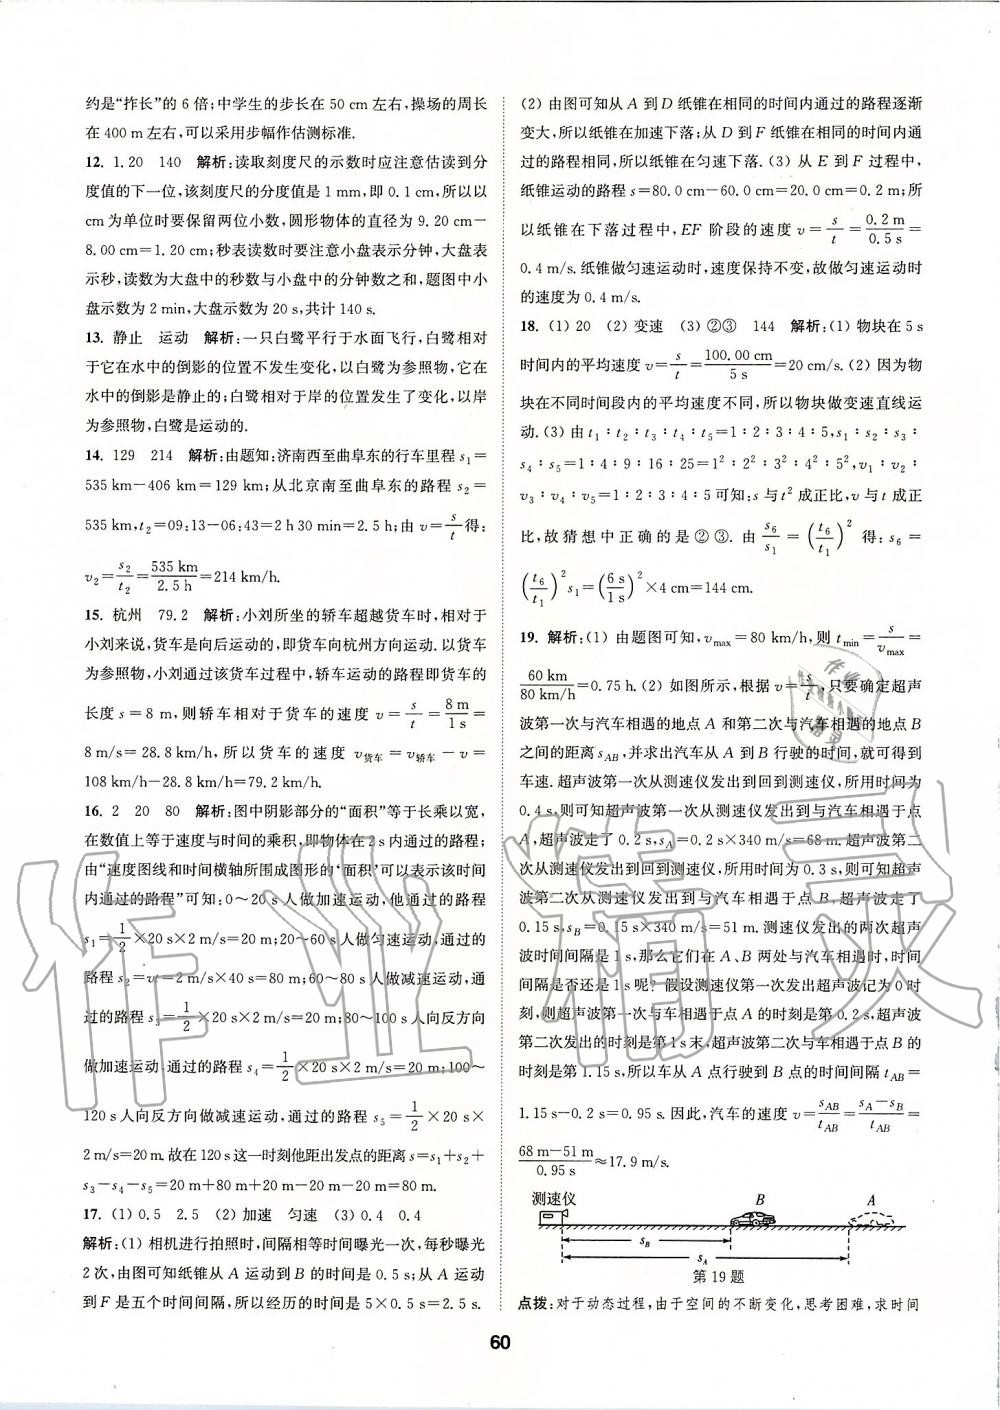 约是“拃长”的 6 倍;中学生的步长在 50 cm 左右,操场的周长
在 400 m 左右,可以采用步幅作估测标准.
12. 1.20 140 解析:读取刻度尺的示数时应注意估读到分
度值的下一位,该刻度尺的分度值是 1 mm,即 0.1 cm,所以以
cm 为单位时要保留两位小数,圆形物体的直径为 9.20 cm−
8.00 cm=1.20 cm;秒表读数时要注意小盘表示分钟,大盘表
示秒,读数为大盘中的秒数与小盘中的分钟数之和,题图中小
盘示数为 2 min,大盘示数为 20 s,共计 140 s.
13. 静止 运动 解析:一只白鹭平行于水面飞行,白鹭相对
于它在水中的倒影的位置不发生变化,以白鹭为参照物,它在
水中的倒影是静止的;白鹭相对于岸的位置发生了变化,以岸
为参照物,白鹭是运动的.
14. 129 214 解析:由题知:济南西至曲阜东的行车里程 s₁=
535 km−406 km=129 km;从北京南至曲阜东的路程 s₂=
535 km,t₂=09:13−06:43=2 h 30 min=2.5 h;由 v=s/t得:
v₂=s₂/t₂=535 km/2.5 h=214 km/h.
15. 杭州 79.2 解析:小刘所坐的轿车超越货车时,相对于
小刘来说,货车是向后运动的,即货车向杭州方向运动.以货车
为参照物,小刘通过该货车过程中,轿车运动的路程即货车的
长度 s=8 m,则轿车相对于货车的速度 v=s/t=8 m/1 s=
8 m/s=28.8 km/h,所以货车的速度 v货车=v轿车−v=
108 km/h−28.8 km/h=79.2 km/h.
16. 2 20 80 解析:图中阴影部分的“面积”等于长乘以宽,
在数值上等于速度与时间的乘积,即物体在 2 s 内通过的路程;
由“速度图线和时间横轴所围成图形的‘面积’可以表示该时间
内通过的路程”可知:0～20 s 人做加速运动,他通过的路程
s₁=1/2×20 s×2 m/s=20 m;20～60 s 人做匀速运动,通过的
路程 s₂=vt=2 m/s×40 s=80 m;60～80 s 人做减速运动,通
过的路程 s₃=1/2×20 s×2 m/s=20 m;80～100 s 人向反方向
做加速运动,通过的路程 s₄=1/2×20 s×2 m/s=20 m;100～
120 s 人向反方向做减速运动,通过的路程 s₅=1/2×20 s×
2 m/s=20 m.故在 120 s 这一时刻他距出发点的距离=s₁+s₂+
s₃−s₄−s₅=20 m+80 m+20 m−20 m−20 m=80 m.
17. (1) 0.5 2.5 (2) 加速 匀速 (3) 0.4 0.4
解析:(1) 相机进行拍照时,间隔相等时间曝光一次,每秒曝光
2 次,由图可知纸锥从 A 运动到 B 的时间是 0.5 s;从 A 运动
到 F 是五个时间间隔,所以经历的时间是 5×0.5 s=2.5 s.
(2) 由图可知从 A 到 D 纸锥在相同的时间内通过的路程逐渐
变大,所以纸锥在加速下落;从 D 到 F 纸锥在相同的时间内通
过的路程相同,所以纸锥在匀速下落.(3) 从 E 到 F 过程中,
纸锥运动的路程 s=80.0 cm−60.0 cm=20.0 cm=0.2 m;所
以纸锥在下落过程中,EF 阶段的速度 v=s/t=0.2 m/0.5 s=
0.4 m/s.纸锥做匀速运动时,速度保持不变,故做匀速运动时
的速度为 0.4 m/s.
18. (1) 20 (2) 变速 (3) ②③ 144 解析:(1) 物块在 5 s
时间内的平均速度 v=s/t=100.00 cm/5 s=20 cm/s.(2) 因为物
块在不同时间段内的平均速度不同,所以物块做变速直线运
动.(3) 由 t₁∶t₂∶t₃∶t₄∶t₅=1∶2∶3∶4∶5,s₁∶s₂∶s₃∶
s₄∶s₅=1∶4∶9∶16∶25=1²∶2²∶3²∶4²∶5²,v₁∶v₂∶
v₃∶v₄∶v₅=1∶2∶3∶4∶5 可知:s 与 t² 成正比,v 与 t 成正
比,故猜想中正确的是②③.由 s₆/s₁=(t₆/t₁)² 得:s₆=
(t₆/t₁)²s₁=(6 s/1 s)²×4 cm=144 cm.
19. 解析:(1) 由题图可知,vmax=80 km/h,则 tmin=s/vmax=
60 km/80 km/h=0.75 h.(2) 如图所示,根据 v=s/t,只要确定超声
波第一次与汽车相遇的地点 A 和第二次与汽车相遇的地点 B
之间的距离 sAB,并求出汽车从 A 到 B 行驶的时间,就可得到
车速.超声波第一次从测速仪发出到回到测速仪,所用时间为
0.4 s,则可知超声波第一次从测速仪发出到与汽车相遇于点
A,超声波走了 0.2 s,sA=0.2 s×340 m/s=68 m.超声波第二
次从测速仪发出到回到测速仪,所用时间为 0.3 s,则可知超声
波第二次从测速仪发出到与汽车相遇于点 B,超声波走了
0.15 s,sB=0.15 s×340 m/s=51 m.测速仪发出的两次超声
波时间间隔是 1 s,那么它们在 A、B 两处与汽车相遇时,时间
间隔是否还是 1 s 呢?假设测速仪第一次发出超声波记为 0 时
刻,则超声波第一次与车相遇于点 A 的时刻是第 0.2 s,超声波
第二次发出的时刻是第 1 s 末,超声波与汽车相遇于点 B 的
时刻是第 1.15 s,所以车从 A 点行驶到 B 点的时间间隔 tAB=
1.15 s−0.2 s=0.95 s.因此,汽车的速度 v=sAB/tAB=sA−sB/tAB=
68 m−51 m/0.95 s≈17.9 m/s.
测速仪 B A
sB
sA
第 19 题
点拨:对于动态过程,由于空间的不断变化,思考困难,求时间
60
作业精灵